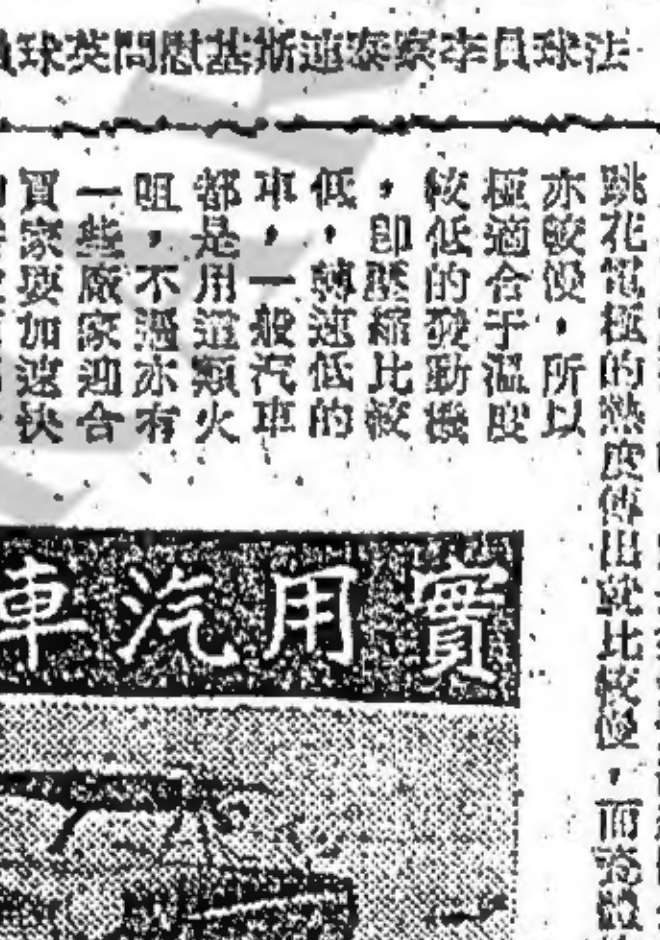 法球員李察泰連斯基慰問英球
跳花電極的熱度傳出就比較慢，而
亦較慢，所以
極適合于溫度
較低的發動機
，即壓縮比較
低，轉速低的
車，一般汽車
都是用這類火
咀，不過亦有
一些廠家迎合
買家要加速快
實用汽車